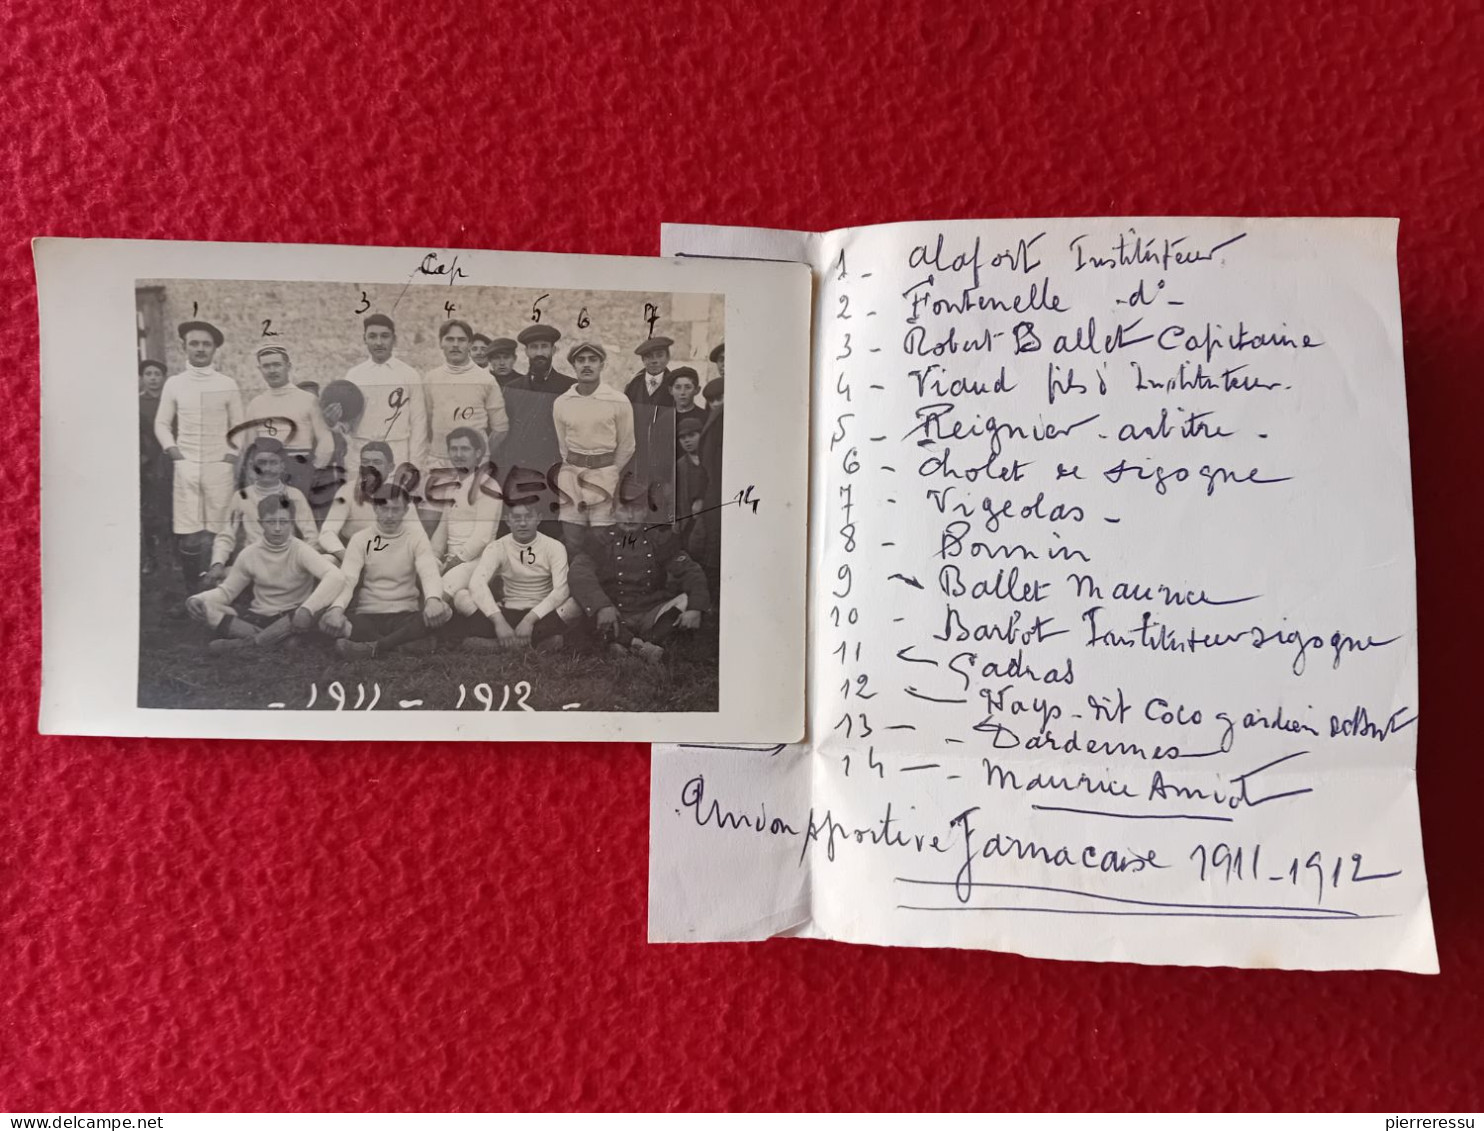 Cap
1
2
3
4
5
6
7
8
9
10
12
13
14
14
PIERRERESSU
- 1911 - 1912 -
1 - Alafort Instituteur
2 - Fontenelle - d° -
3 - Robert Ballet Capitaine
4 - Viaud fils d'Instituteur.
5 - Reignier - arbitre -
6 - Cholet de Sigogne
7 - Vigeolas -
8 - Bonnin
9 - Ballet Maurice
10 - Barbot Instituteur Sigogne
11 - Gadras
12 - Nays - dit Coco gardien de But
13 - - Dardennes
14 - - Maurice Amiot
Union Sportive Jarnacaise 1911-1912
pierreressu
delcampe.net